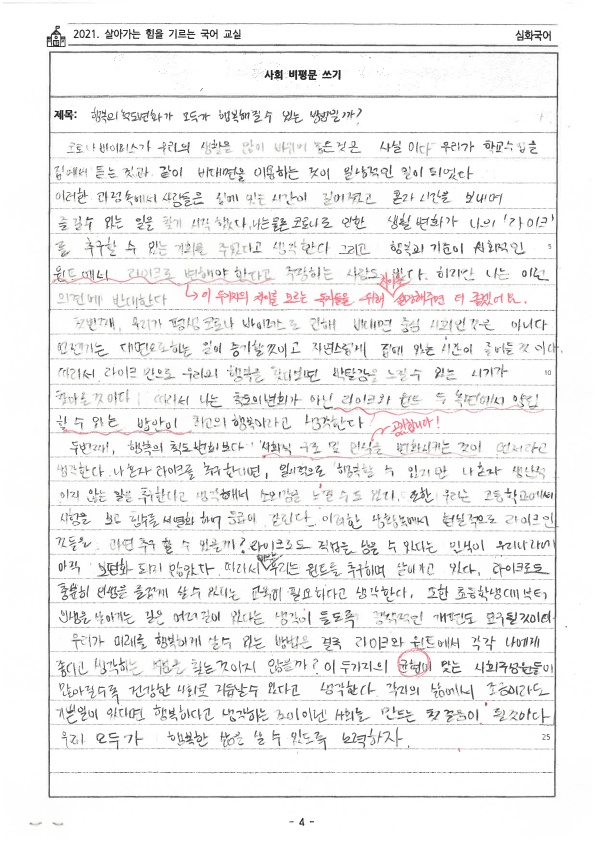 2021. 살아가는 힘을 기르는 국어 교실
심화국어
사회 비평문 쓰기
제목: 행복의 척도변화가 모두가 행복해질 수 있는 방법일까?
코로나 바이러스가 우리의 생활을 많이 바뀌게 놓은것은 사실이다 우리가 학교수업을
집에서 듣는 것과 같이 비대면을 이용하는 것이 일상적인 일이 되었다
이러한 과정속에서 사람들은 집에 있는 시간이 길어졌고 혼자 시간을 보내며
즐길수 있는 일을 찾기 시작했다. 나는물론 코로나로 인한 생활변화가 나의 '라이크'
를 추구할 수 있는 기회를 주었다고 생각한다 그리고 행복의 기준이 사회적인 5
원드에서 라이크로 변해야 한다고 주장하는 사람도 많다. 하지만 나는 이런
의견에 반대한다
↳ 이 두가지의 차이를 모르는 독자들을 위해 차이를 설명해주면 더 좋겠어요.
첫번째, 우리가 평생 코로나 바이러스로 인해 비대면 중심 사회인것은 아니다
언젠가는 대면으로하는 일이 증가할것이고 자연스럽게 집에 있는 시간이 줄어들 것이다.
따라서 라이크 만으로 우리의 행복을 찾다보면 박탈감을 느낄수 있는 시기가 10
찾아올것이다 따라서 나는 척도의변화가 아닌 라이크와 원드 두 측면에서 양립
할 수 있는 방안이 최고의 행복이라고 생각한다
공감해요!
두번째, 행복의 척도변화보다 사회적 구조 및 인식을 변화시키는 것이 먼저라고
생각한다. 나혼자 라이크를 추구한다면, 일시적으로 행복할 수 있지만 나혼자 생산적
이지 않는 일을 추구한다고 생각해서 소외감을 느낄수도 있다. 또한 우리는 고등학교에서
시험을 보고 점수를 세분화 하여 등급이 갈린다. 이러한 상황속에서 현실적으로 라이크인
것들을 과연 추구 할 수 있을까? 라이크로도 직업을 삼을 수 있다는 인식이 우리나라에
아직 보편화 되지 않았다. 따라서 우리는 원드를 추구하며 살아가고 있다. 라이크로도
충분히 인생을 즐겁게 살 수 있다는 인식이 필요하다고 생각한다. 또한 초등학생때부터
인생을 살아가는 길은 여러길이 있다는 생각이 들도록 경제적인 개편도 모두될것이며
우리가 미래를 행복하게 살수 있는 방법은 결국 라이크와 원드에서 각각 나에게
좋다고 생각하는 것을 찾는것이지 않을까? 이 두가지의 균형이 맞는 사회구성원들이
많아질수록 건강한 사회로 거듭날수 있다고 생각한다. 각자의 삶에서 조금이라도
기쁜일이 있다면 행복하다고 생각하는 것이야말로 사회를 만드는 첫 걸음이 될것이다
우리 모두가 행복한 삶을 살 수 있도록 노력하자. 25
- 4 -